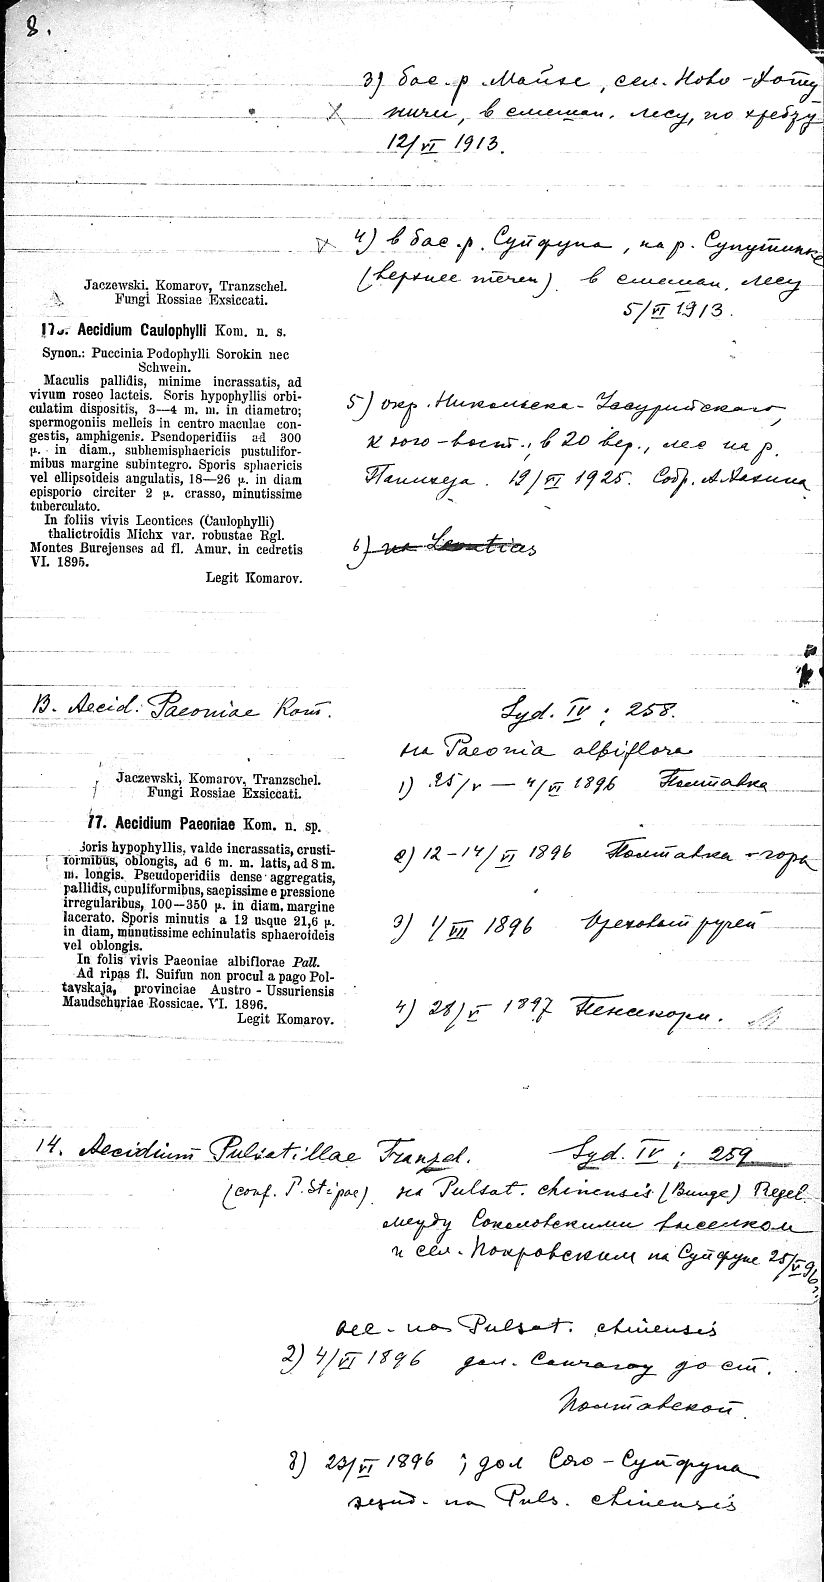 8.
3) бас. р. Майхе, сел. Ново-Хоту-
ничи, в смешан. лесу, по хребту
12/VI 1913.
4) в бас. р. Суйфуна, на р. Супутинке
(верхнее течен) в смешан. лесу
5/VI 1913.
Jaczewski, Komarov, Tranzschel.
Fungi Rossiae Exsiccati.
Aecidium Caulophylli Kom. n. s.
Synon.: Puccinia Podophylli Sorokin nec
Schwein.
Maculis pallidis, minime incrassatis, ad
vivum roseo lacteis. Soris hypophyllis orbi-
culatim dispositis, 3—4 m. m. in diametro;
spermogoniis melleis in centro maculae con-
gestis, amphigenis. Pseudoperidiis ad 300
μ. in diam., subhemisphaericis pustulifor-
mibus margine subintegro. Sporis sphaericis
vel ellipsoideis angulatis, 18—26 μ. in diam
episporio circiter 2 μ. crasso, minutissime
tuberculato.
In foliis vivis Leontices (Caulophylli)
thalictroidis Michx var. robustae Rgl.
Montes Burejenses ad fl. Amur, in cedretis
VI. 1895.
Legit Komarov.
5) окр. Никольска-Уссурийского,
к юго-вост., в 20 вер., лес на р.
19/VI 1925. Собр.
6) на Leontices
13. Aecid. Paeoniae Kom.
Syd. IV; 258.
на Paeonia albiflora
Jaczewski, Komarov, Tranzschel.
Fungi Rossiae Exsiccati.
77. Aecidium Paeoniae Kom. n. sp.
Soris hypophyllis, valde incrassatis, crusti-
formibus, oblongis, ad 6 m. m. latis, ad 8 m.
m. longis. Pseudoperidiis dense aggregatis,
pallidis, cupuliformibus, saepissime e pressione
irregularibus, 100—350 μ. in diam, margine
lacerato. Sporis minutis a 12 usque 21,6 μ.
in diam, munutissime echinulatis sphaeroideis
vel oblongis.
In folis vivis Paeoniae albiflorae Pall.
Ad ripas fl. Suifun non procul a pago Pol-
tavskaja, provinciae Austro-Ussuriensis
Maudschuriae Rossicae. VI. 1896.
Legit Komarov.
1) 25/V — 4/VI 1896 Полтавка
2) 12-14/VI 1896 Полтавка - гора
3) 1/VII 1896 Ореховый ручей
4) 28/V 1897
14. Aecidium Pulsatillae Tranzsch. Syd. IV; 259
(conf. P. Stipae) на Pulsat. chinensis (Bunge) Regel
между Соколовскими выселком
и сел. Покровским на Суйфуне 25/V 96 г.
aec. на Pulsat. chinensis
2) 4/VI 1896 дол. Санчагоу до ст.
Полтавской.
3) 23/VI 1896; дол Сяо-Суйфуна
эцид. на Puls. chinensis